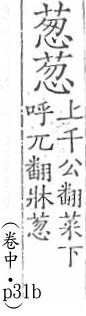 葱葱
上千公翻菜下
呼兀翻牀葱
（卷中・p31b）